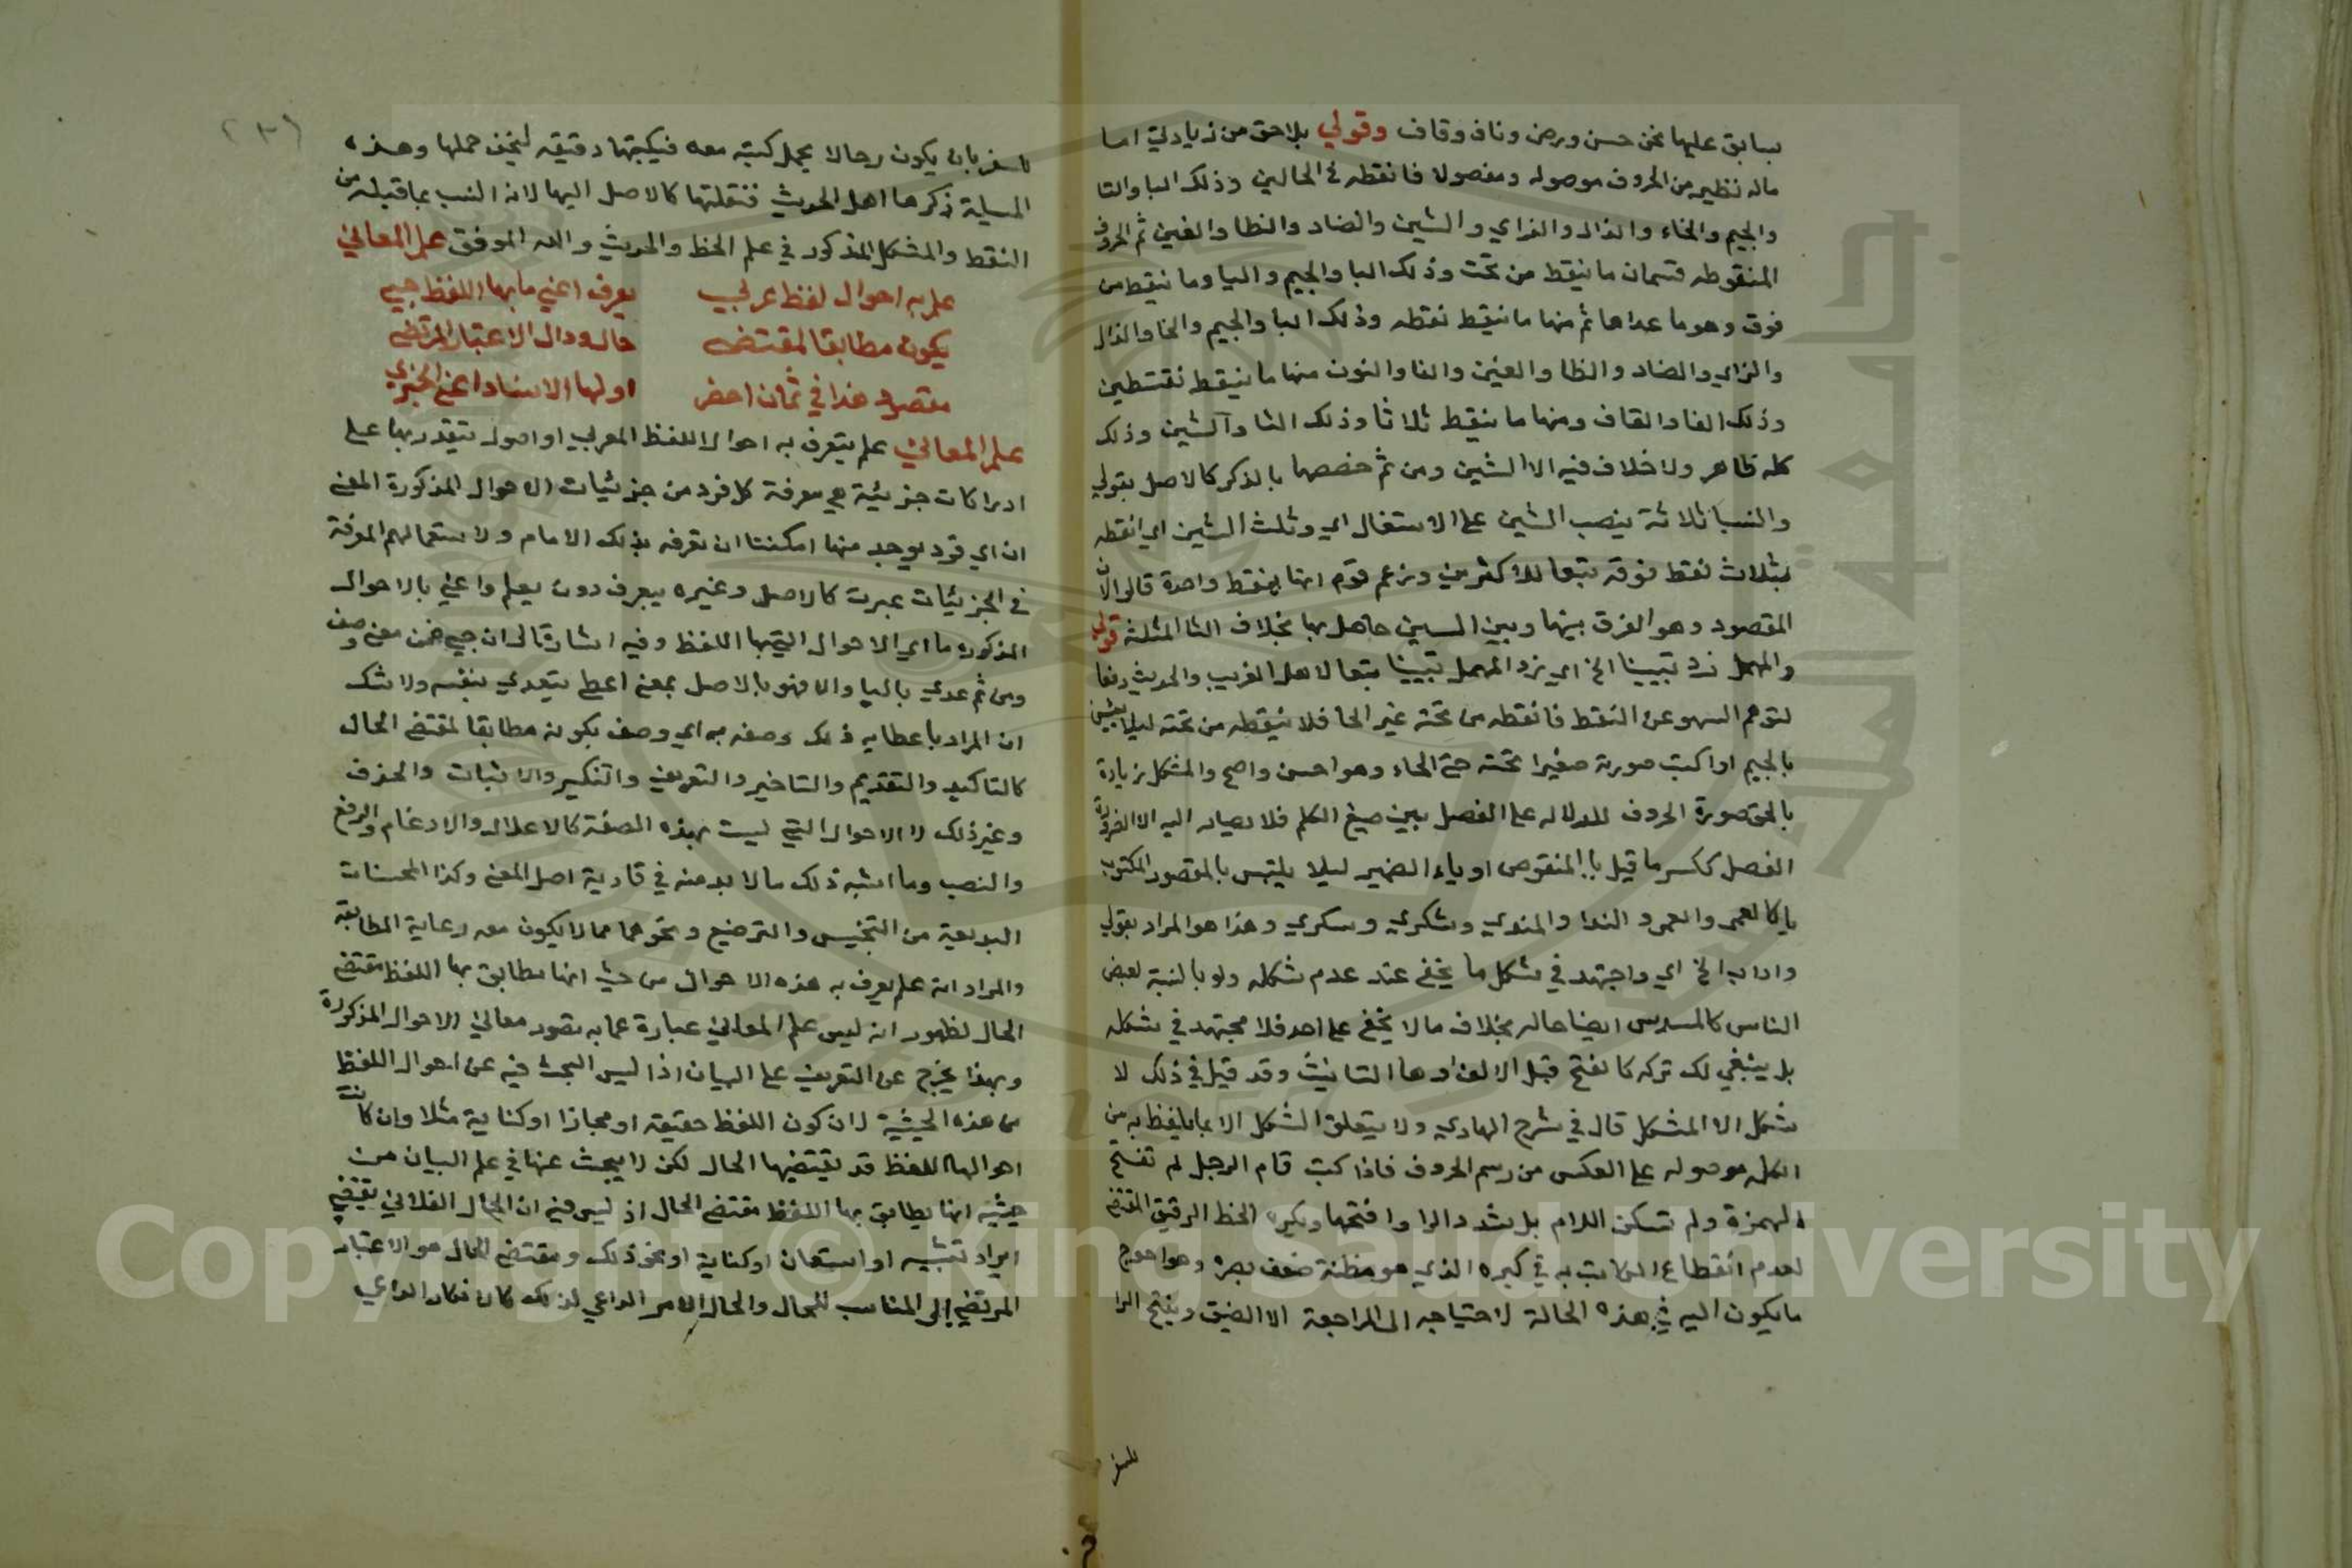 بسابق عليها نحن حسن ورصن وناف وقاف وقولي بلاحق من زيادتي اما
ماله نظير من الحروف موصوله ومفصولا فانقطه في الحالين وذلك البا والتا
والجيم والخاء والذال والزاي والشين والضاد والظا والغين ثم الحروف
المنقوطه قسمان ما ينقط من تحت وذلك البا والجيم واليا وما ينقط من
فوق وهو ما عداها ثم منها ما ينقط نقطه وذلك البا والجيم والخا والذال
والزاي والضاد والظا والغين والفا والنون منها ما ينقط نقتطين
وذلك الفا والقاف ومنها ما ينقط ثلاثا وذلك الثا والشين وذلك
كله ظاهر ولا خلاف فيه الا الشين ومن ثم خصصها بالذكر كالاصل بقولي
والشين ثلاثة بنصب الشين على الاشتغال اي وثلث الشين اي انقطه
بثلاث نقط فوقه تبعا للاكثرين وزعم قوم انها بنقط واحدة قالوا لان
المقصود وهو الفرق بينها وبين السين حاصل بها بخلاف الثا المثلثة قولي
والمهمل زد تبيينا الخ اي زد المهمل تبيينا تبعا لاهل الغريب والحديث دفعا
لتوهم السهو عن النقط فانقطه من تحته غير الحا فلا ينقطه من تحته ليلا يلتبس
بالجيم او اكتب صورته صغيرا تحته حتى الحاء وهو احسن واصح والمشكل بزيادة
بالحق صورة الحروف للدلاله على الفصل بين صيغ الكلم فلا يصار اليه الا لضرورة
الفصل ككسر ما قبل يا المنقوص او ياء الضمير ليلا يلتبس بالمقصور المكتوب
يا كالعمى والعمى والندا والمندي وشكري وسكري وهذا هو المراد بقولي
واداب الخ اي واجتهد في شكل ما يخفى عند عدم شكله ولو بالنسبة لبعض
الناس كالمسدس ايضا حاله بخلاف ما لا يخفى على احد فلا مجتهد في شكله
بل ينبغي لك تركه كالفتح قبل الالف او ها التانيث وقد قيل في ذلك لا
تشكل الا المشكل قال في شرح الهادي ولا يتعلق الشكل الا بما يلفظ به من
الكل موصوله على العكس من رسم الحروف فاذا كتبت قام الرجل لم تفتح
الهمزة ولم تسكن اللام بل شدد الرا وافتحها ويكره الخط الرقيق المقتضي
لعدم انقطاع الكاتب به في كبره الذي هو مظنة ضعف بصره وهو احوج
ما يكون اليه في هذه الحالة لاحتياجه الى المراجعة الا لضيق ويفتح الرا
للسفر
(٣)
للسفر بان يكون رحالا يحمل كتبه معه فيكتبها دقيقه ليخف حملها وهذه
المسيلة ذكرها اهل الحديث فنقلتها كالاصل اليها لانه انسب بما قبله من
النقط والمشكل المذكور في علم الخط والحديث والله الموفق علم المعاني
علم به احوال لفظ عربي يعرف اعني ما بها اللفظ حبي
يكون مطابقا لمقتضى حال وذا الاعتبار المرتضى
مقصود هذا في ثمان احصر اولها الاسناد اعني الخبري
علم المعاني علم يتعرف به احوال اللفظ العربي او اصول يقتدر بها على
ادراكات جزئية هي معرفة كل فرد من جزئيات الاحوال المذكورة المعنى
ان اي فرد يوجد منها امكننا ان نعرفه بذلك الامام ولاستعمالهم المعرفة
في الجزئيات عبرت كالاصل وغيره بيعرف دون يعلم واعني بالاحوال
المذكورة ما اي الاحوال التي بها اللفظ وفيه اشارة الى ان حبي ضمن معنى وصف
ومن ثم عدي باليا والا فهو بالاصل بمعنى اعطى يتعدي بنفسه ولا شك
ان المراد باعطايه ذلك وصفه به اي وصف بكونه مطابقا لمقتضى الحال
كالتاكيد والتقديم والتاخير والتعريف والتنكير والاثبات والحذف
وغير ذلك لا الاحوال التي ليست بهذه الصفة كالاعلال والادغام والرفع
والنصب وما اشبه ذلك مما لا بد منه في تادية اصل المعنى وكذا المحسنات
البديعية من التجنيس والترصيع ونحوهما مما لا يكون معه رعاية المطابقة
والمراد انه علم يعرف به هذه الاحوال من حيث انها يطابق بها اللفظ مقتضى
الحال لظهور ان ليس علم المعاني عبارة عما به تصور معاني الاحوال المذكورة
وبهذا يخرج عن التعريف علم البيان اذ ليس البحث فيه عن احوال اللفظ
من هذه الحيثية لان كون اللفظ حقيقة او مجازا او كناية مثلا وان كانت
احوالا للفظ قد يقتضيها الحال لكن لا يبحث عنها في علم البيان من
حيثيه انها يطابق بها اللفظ مقتضى الحال اذ ليس فيه ان الحال الفلاني يقتضي
ايراد تشبيه او استعارة او كناية او نحو ذلك ومقتضى الحال هو الاعتبار
المرتضى اي المناسب للحال والحال الامر الداعي لذلك كان فكان الداعي
Copyright © King Saud University